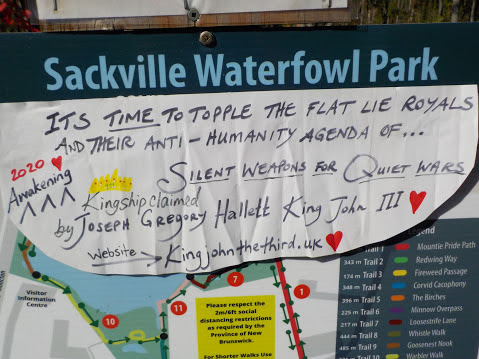 Sackville Waterfowl Park
ITS TIME TO TOPPLE THE FLAT LIE ROYALS
AND THEIR ANTI-HUMANITY AGENDA OF...
SILENT WEAPONS FOR QUIET WARS
2020
Awakening
Kingship claimed
by JOSEPH GREGORY Hallett King John III
Website
Kingjohnthethird.uk
Legend
Trail 1 Mountie Pride Path
343 m Trail 2 Redwing Way
174 m Trail 3 Fireweed Passage
348 m Trail 4 Corvid Cacophony
396 m Trail 5 The Birches
225 m Trail 6 Minnow Overpass
217 m Trail 7 Loosestrife Lane
444 m Trail 8 Whistle Walk
485 m Trail 9 Gooseneck Nook
Trail 10 Warbler Walk
Visitor
Information
Centre
10
11
7
1
Please respect the
2m/6ft social
distancing restrictions
as required by the
Province of New
Brunswick.
For Shorter Walks Use